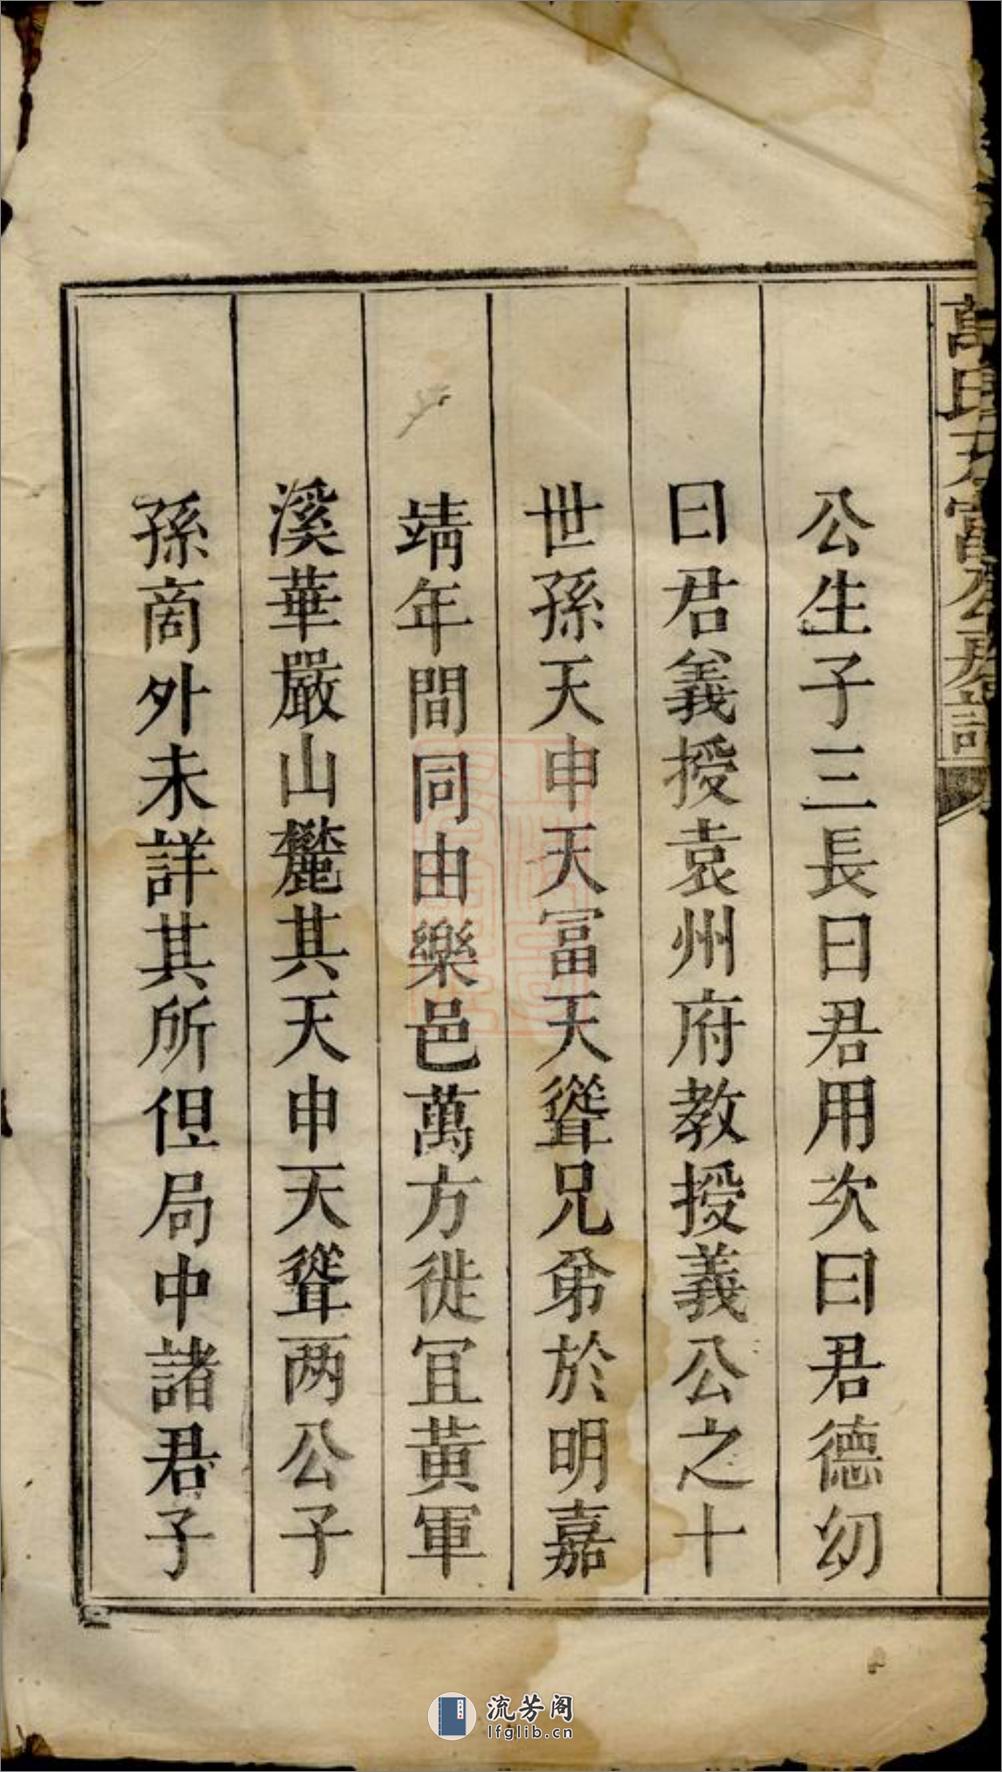 萬氏天富公房譜
公生子三長曰君用次曰君德幼
曰君義授袁州府教授義公之十
世孫天申天冨天聳兄弟於明嘉
靖年間同由樂邑萬方徙冝黃軍
溪華嚴山麓其天申天聳两公子
孫啇外未詳其所但局中諸君子
流芳阁
lfglib.cn